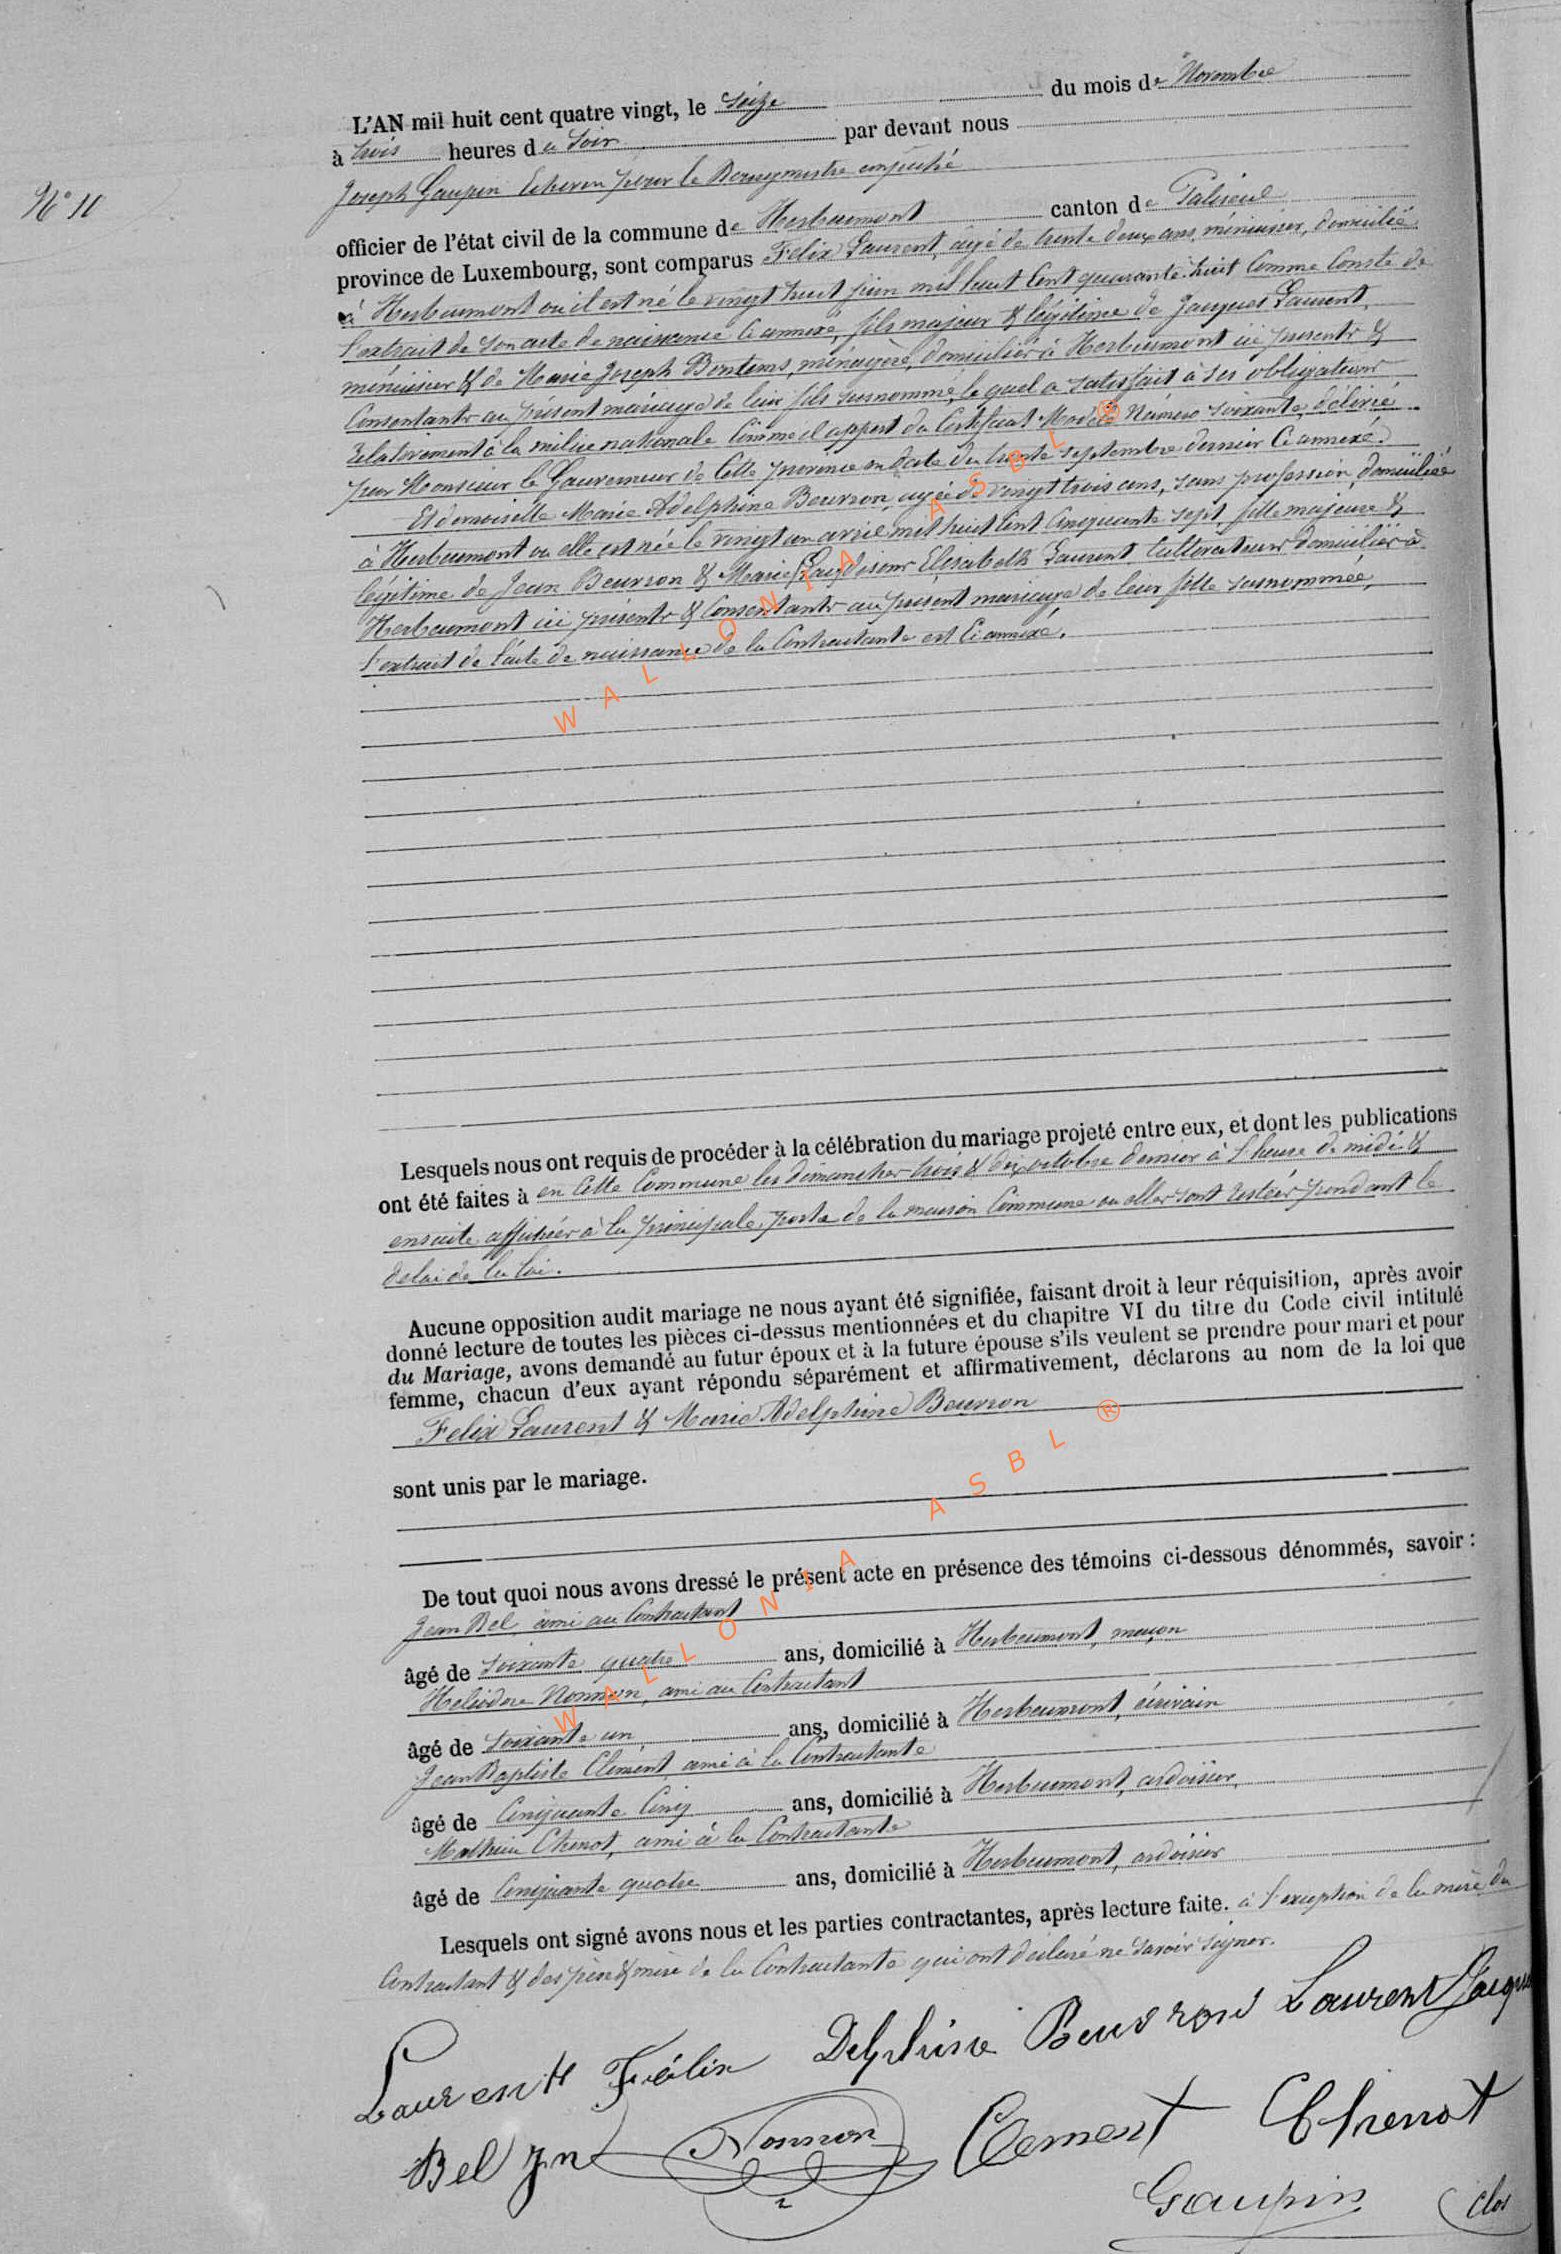 N° 11
L'AN mil huit cent quatre vingt, le seize du mois de Novembre
à trois heures du soir par devant nous
Joseph Gaupin Echevin pour le Bourgmestre empêché
officier de l'état civil de la commune de Herbeumont canton de Paliseul
province de Luxembourg, sont comparus Felix Laurent, âgé de trente deux ans, ménuisier, domicilié
à Herbeumont où il est né le vingt huit juin mil huit Cent quarante huit Comme Conste de
l'extrait de son acte de naissance Ci annexé, fils majeur & légitime de Jacques Laurent,
ménuisier & de Marie Joseph Bontems, ménagère, domiciliés à Herbeumont ici présents &
Consentants au présent mariage de leur fils susnommé, le quel a satisfait à ses obligations
relativement à la milice nationale Comme il appert du Certificat Modèle Numéro soixante, délivré
par Monsieur le Gouverneur de Cette province en date du trente septembre dernier Ci annexé.
Et demoiselle Marie Adelphine Beurson, agée de vingt trois ans, sans profession, domiciliée
à Herbeumont où elle est née le vingt un avril mil huit Cent Cinquante sept, fille majeure &
légitime de Jean Beurson & Marie Elisabeth Laurent, Cultivateurs domiciliés à
Herbeumont ici présents & Consentants au présent mariage de leur fille susnommée,
l'extrait de l'acte de naissance de la Contractante est Ci annexé.
Lesquels nous ont requis de procéder à la célébration du mariage projeté entre eux, et dont les publications
ont été faites à en Cette Commune les dimanches trois & dix octobre dernier à l'heure de midi &
ensuite affichées à la principale porte de la maison Commune où elles sont restées pendant le
delai de la loi.
Aucune opposition audit mariage ne nous ayant été signifiée, faisant droit à leur réquisition, après avoir
donné lecture de toutes les pièces ci-dessus mentionnées et du chapitre VI du titre du Code civil intitulé
du Mariage, avons demandé au futur époux et à la future épouse s'ils veulent se prendre pour mari et pour
femme, chacun d'eux ayant répondu séparément et affirmativement, déclarons au nom de la loi que
Felix Laurent & Marie Adelphine Beurson
sont unis par le mariage.
De tout quoi nous avons dressé le présent acte en présence des témoins ci-dessous dénommés, savoir :
Jean Bel, ami au Contractant
âgé de soixante quatre ans, domicilié à Herbeumont, maçon
Heliodore Nonnon, ami au Contractant
âgé de soixante un ans, domicilié à Herbeumont, écrivain
Jean Baptiste Clément, ami à la Contractante
âgé de Cinquante Cinq ans, domicilié à Herbeumont, ardoisier,
Mathieu Chenot, ami à la Contractante
âgé de Cinquante quatre ans, domicilié à Herbeumont, ardoisier
Lesquels ont signé avons nous et les parties contractantes, après lecture faite. à l'exception de la mère du
Contractant & des père & mère de la Contractante qui ont déclaré ne savoir signer.
Laurent Félix Delphine Beurson Laurent Jacques
Bel Jn Nonnon Clement Chenot
Gaupin
WALLONIA ASBL ®
WALLONIA ASBL ®